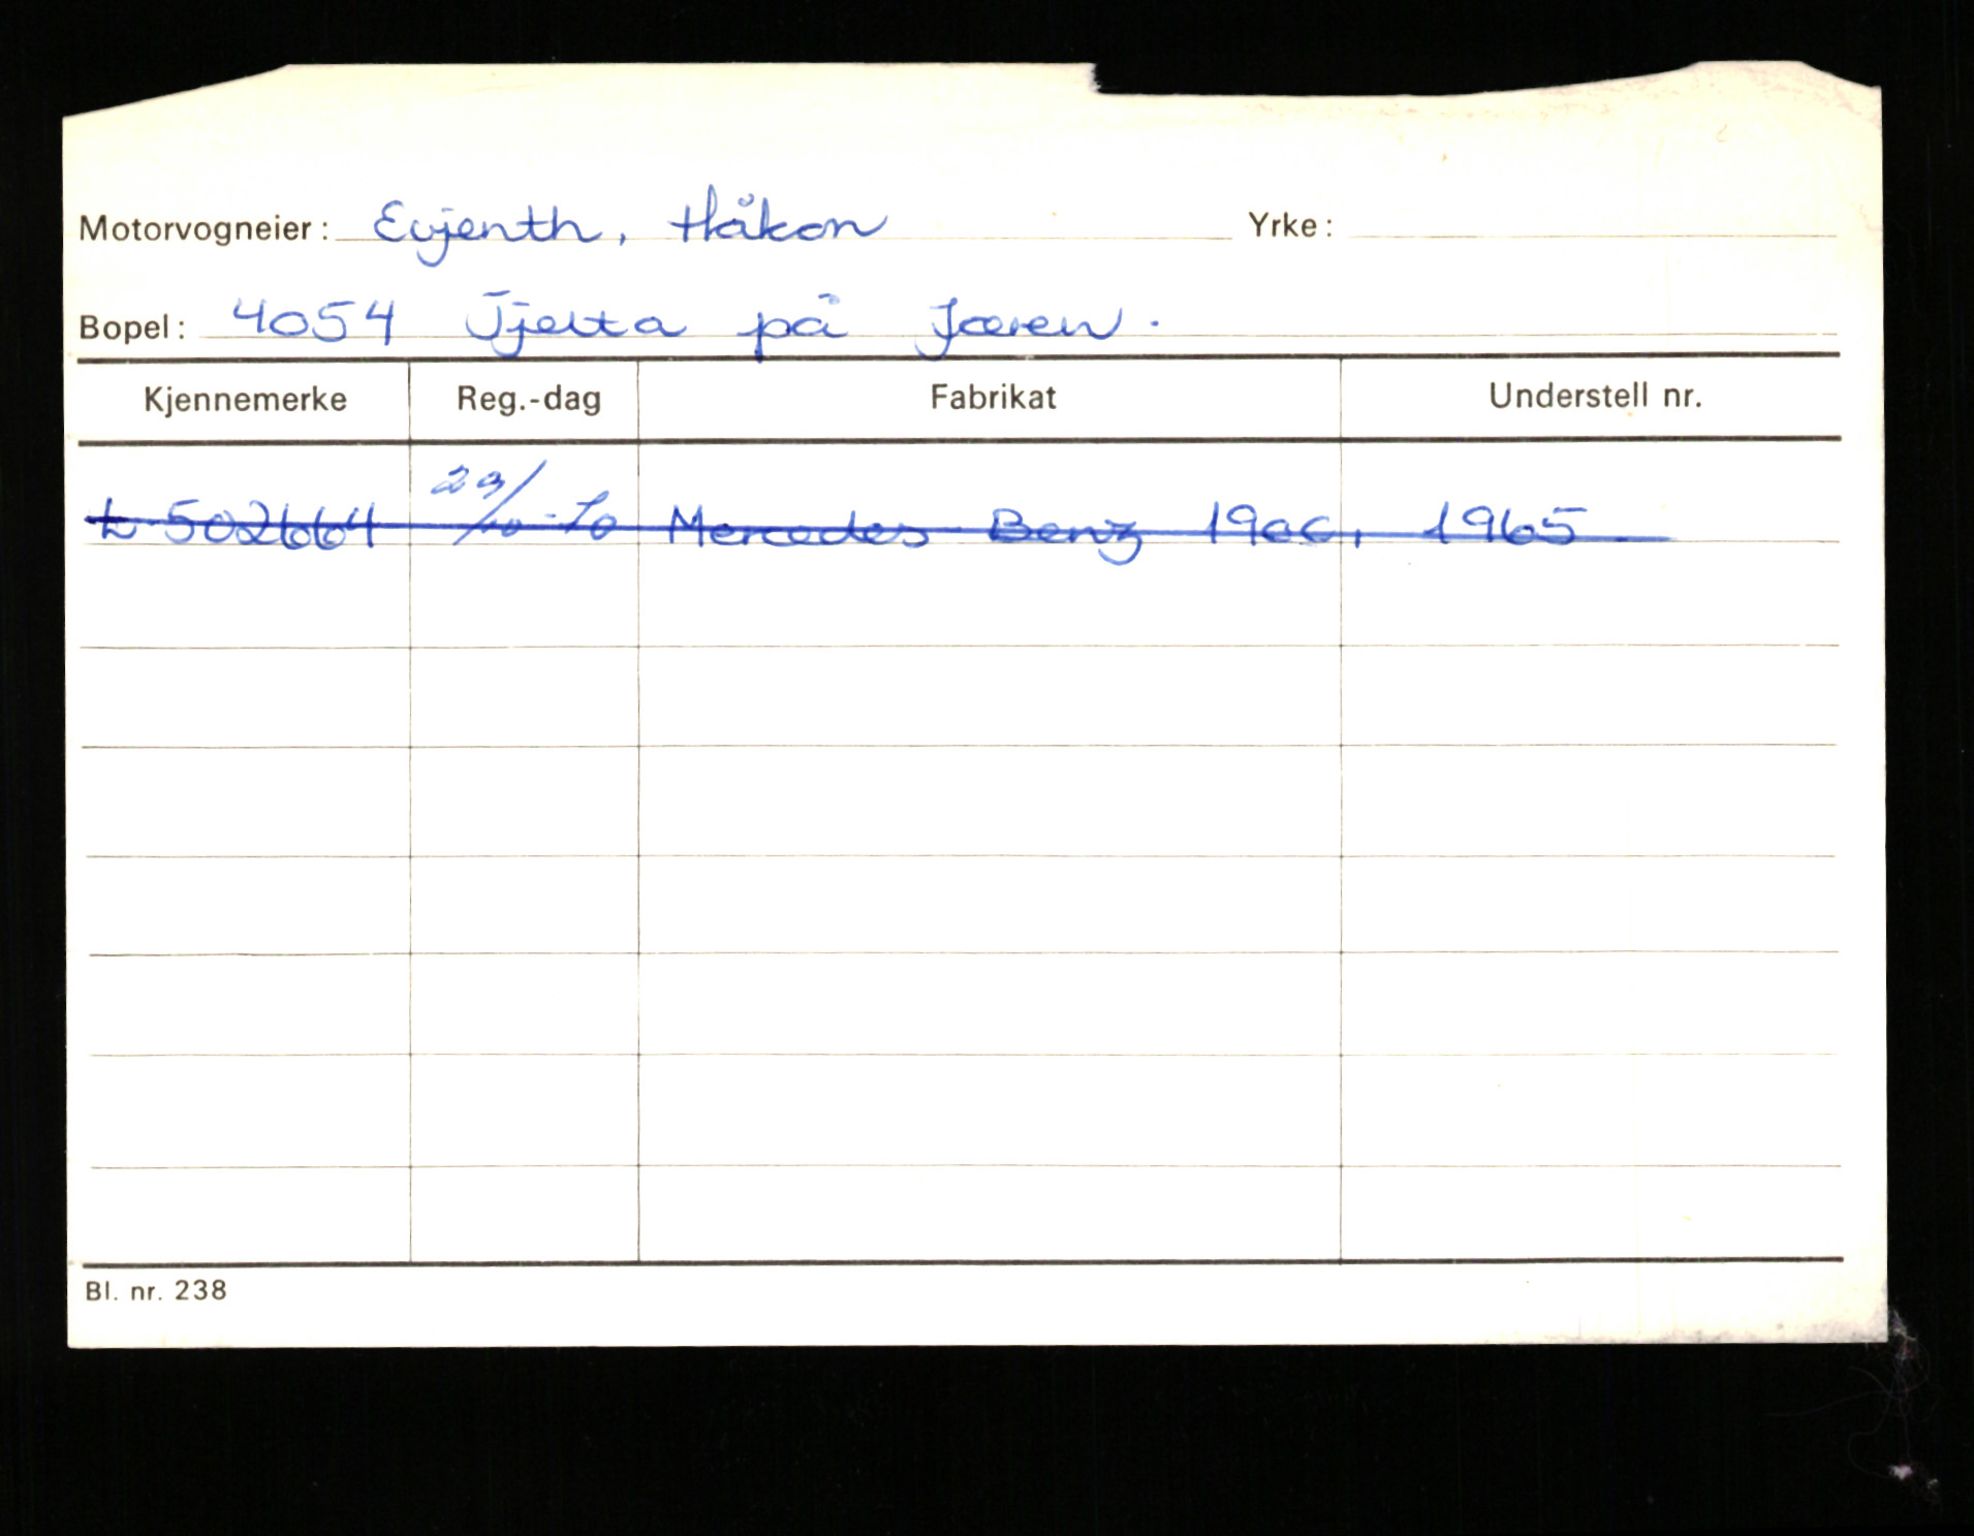 Motorvogneier: Evjenth, Håkon Yrke:
Bopel: 4054 Tjelta på Jæren.
Kjennemerke Reg.-dag Fabrikat Understell nr.
L-502664 29/10-70 Mercedes Benz 190c, 1965
Bl. nr. 238